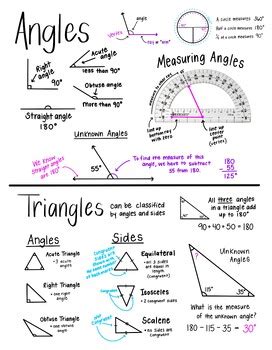 Angles
angle
vertex
ray or "arm"
A circle measures 360°
Half a circle measures 180°
1/4 of a circle measures 90°
Right angle
90°
Acute angle
less than 90°
Obtuse angle
more than 90°
Straight angle
180°
Measuring Angles
line up
bottom ray
with zero
line up
center point
(vertex)
Unknown Angles
We know
straight angles
are 180°
55°
To find the measure of this
angle, we have to subtract
55 from 180.
180
- 55
125°
Triangles
can be classified
by angles and sides
All three angles in
a triangle add
up to 180°
90 + 40 + 50 = 180
Angles
Acute Triangle
- 3 acute
angles
Right Triangle
- one right
angle
Obtuse Triangle
- one obtuse
angle
Sides
Equilateral
- all 3 sides
are equal in
length
(congruent)
Isosceles
- 2 congruent sides
Scalene
- no sides are
congruent
Unknown
Angles
?
115°
35°
What is the
measure of
the unknown angle?
180 - 115 - 35 = 30°